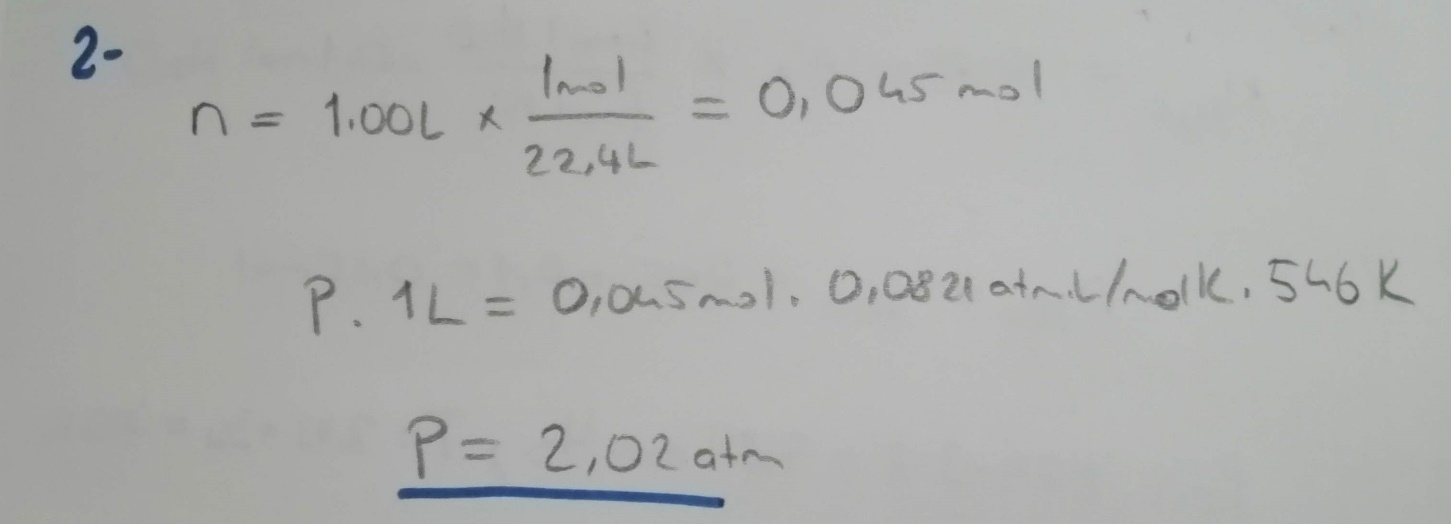 2-
n = 1.00L x 1mol / 22,4L = 0,045 mol
P. 1L = 0,045mol. 0,0821 atm.L/molK. 546 K
P = 2,02 atm